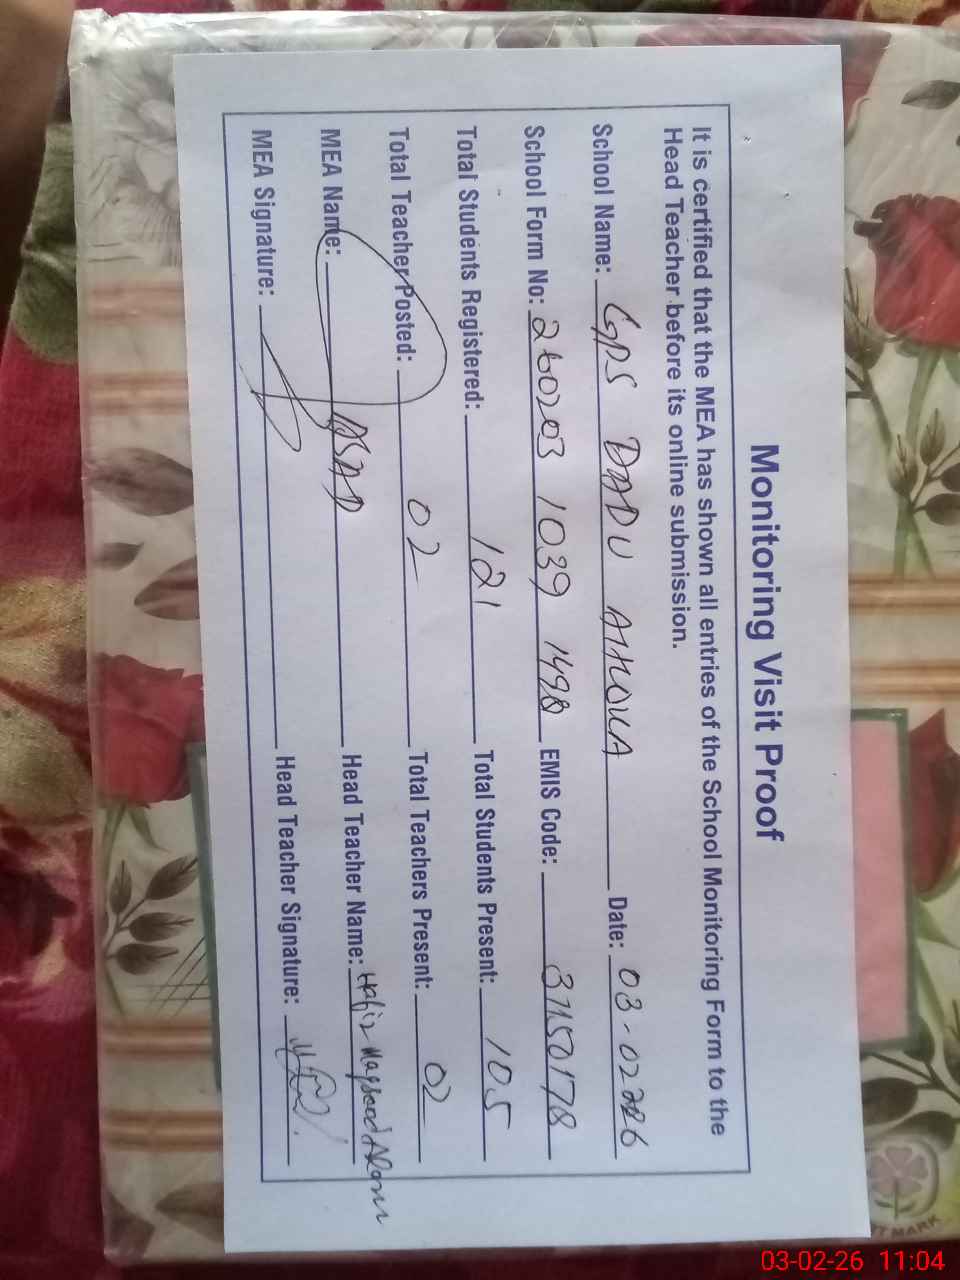 Monitoring Visit Proof
It is certified that the MEA has shown all entries of the School Monitoring Form to the
Head Teacher before its online submission.
School Name: GPS DADU AHOKA Date: 03-02-2026
School Form No: 260203 1039 1498 EMIS Code: 37150178
Total Students Registered: 121 Total Students Present: 105
Total Teacher Posted: 02 Total Teachers Present: 02
MEA Name: ASAD Head Teacher Name: Hafiz Maqsood Alam
MEA Signature: Head Teacher Signature:
T MARK
03-02-26 11:04